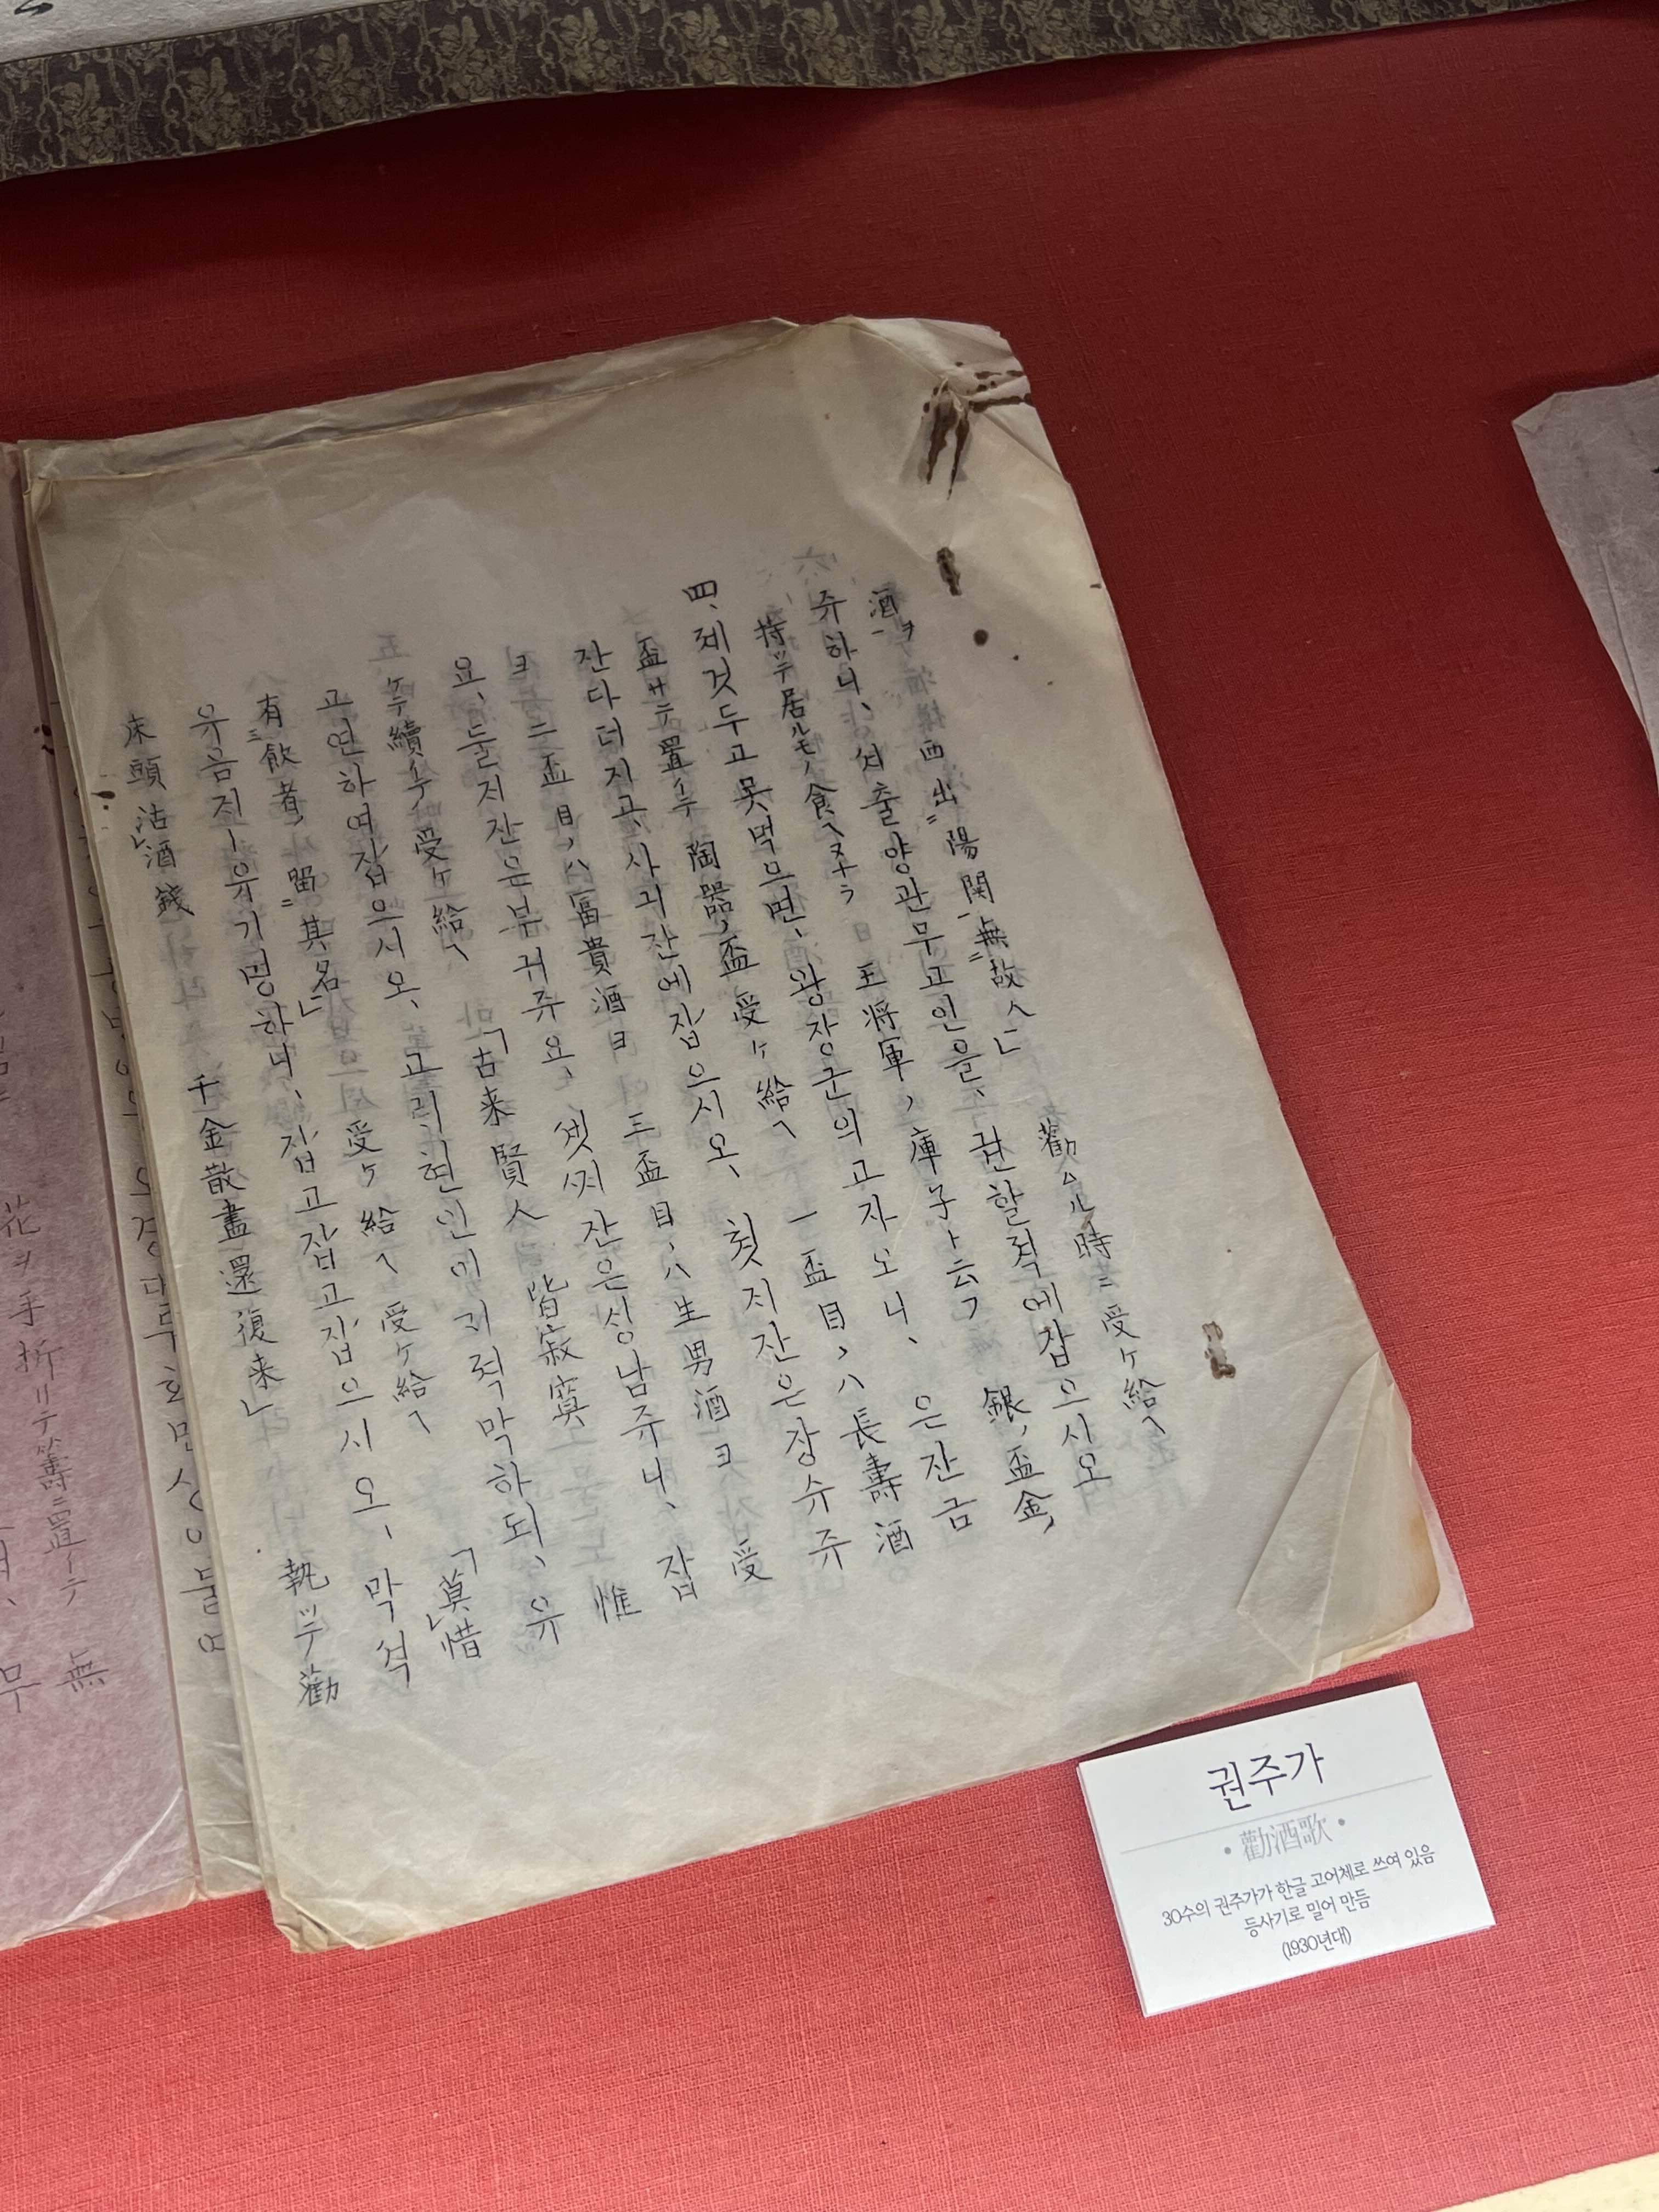 酒ヲ 西出陽関無故人」 勸ムル時ニ受ケ給ヘ
쥬하니、셔출양관무고인을、권할젹에잡으시오
持ッテ居ルモノ食ヘヌナラ 王將軍ノ庫子ト云フ 銀ノ盃金ノ
四、제것두고못먹으면、왕장군의고자오니、은잔금
盃サテ置イテ 陶器ノ盃受ケ給ヘ 一盃目ノハ長壽酒
잔다더지고、사긔잔에잡으시오、첫지잔은장슈쥬
ヨ 二盃目ノハ富貴酒ヨ 三盃目ノハ生男酒ヨ 受
요、둘지잔은부귀쥬요、셋ᄌᆡ잔은싱남쥬니、잡
ケテ續イテ受ケ給ヘ 「古来賢人皆寂寞 惟
고연하여잡으시오、고리현인이긔젹막하되、유
有飲者ノ留其名」 受ケ給ヘ 受ケ給ヘ 「莫レ惜
유음지ㅣ유기명하니、잡고잡고잡으시오、막셕
床頭沽レ酒錢 千金散盡還復来」 執ッテ勸
花ヲ手折リテ籌ニ置イテ 無
권주가
• 勸酒歌 •
30수의 권주가가 한글 고어체로 쓰여 있음
등사기로 밀어 만듬
(1930년대)